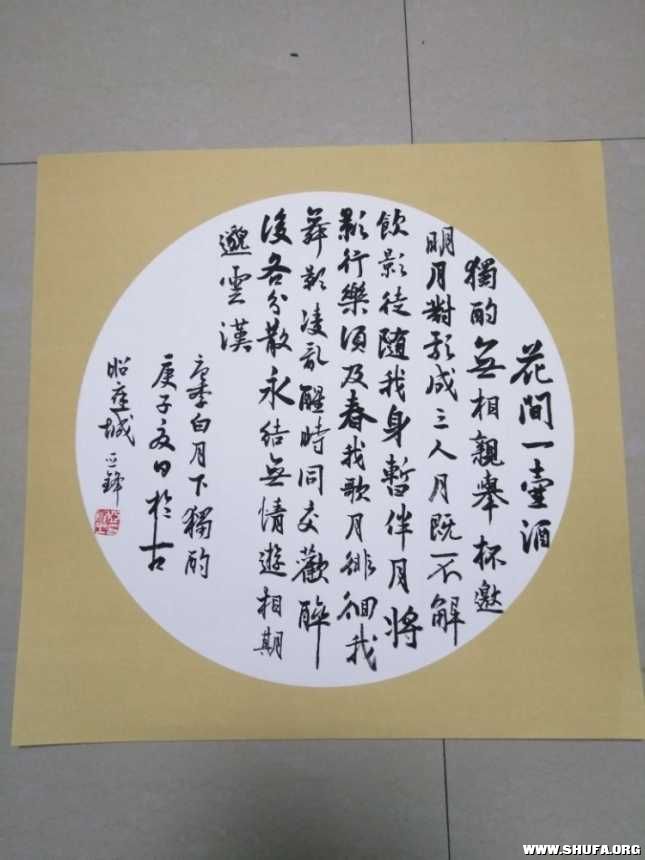 花間一壺酒
獨酌無相親舉杯邀
明月對影成三人月既不解
飲影徒隨我身暫伴月將
影行樂須及春我歌月徘徊我
舞影凌乱醒時同交歡醉
後各分散永結無情遊相期
邈雲漢
唐李白月下獨酌
庚子夏日於古
昭城
WWW.SHUFA.ORG